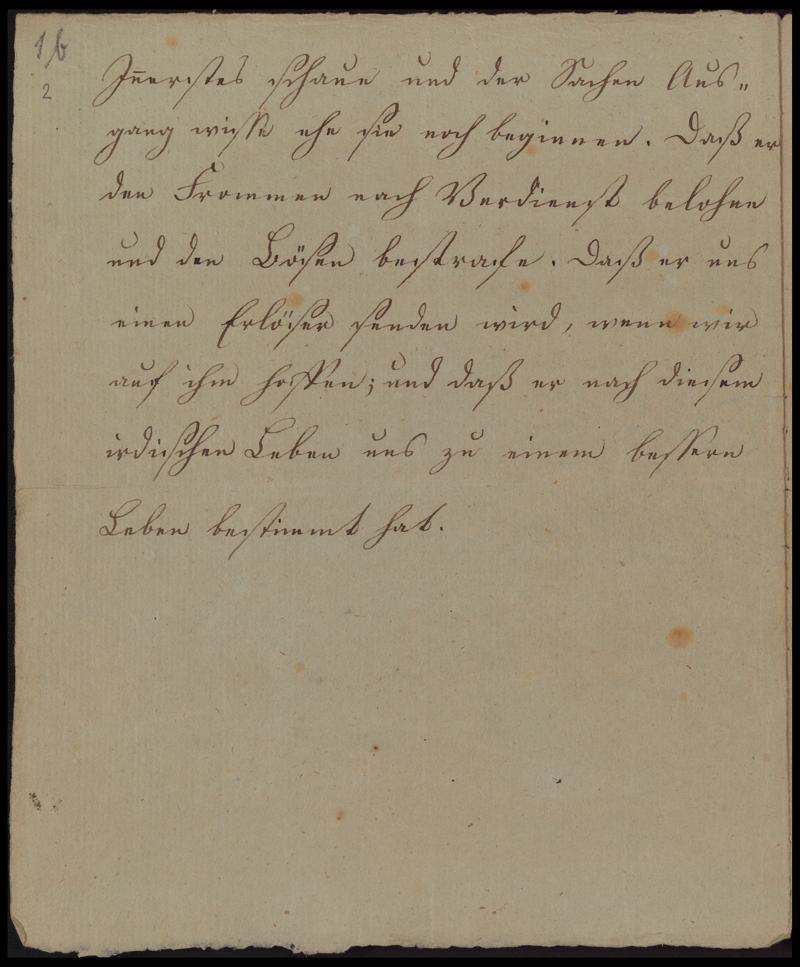 1b
2
Iñerstes schaue und der Sachen Aus„
gang wisse ehe sie noch beginnen. Daß er
den Frommen nach Verdienst belohne
und den Bösen bestrafe. Daß er uns
einen Erlöser senden wird, wenn wir
auf ihm hoffen; und daß er nach diesem
irdischen Leben uns zu einem bessern
Leben bestimmt hat.